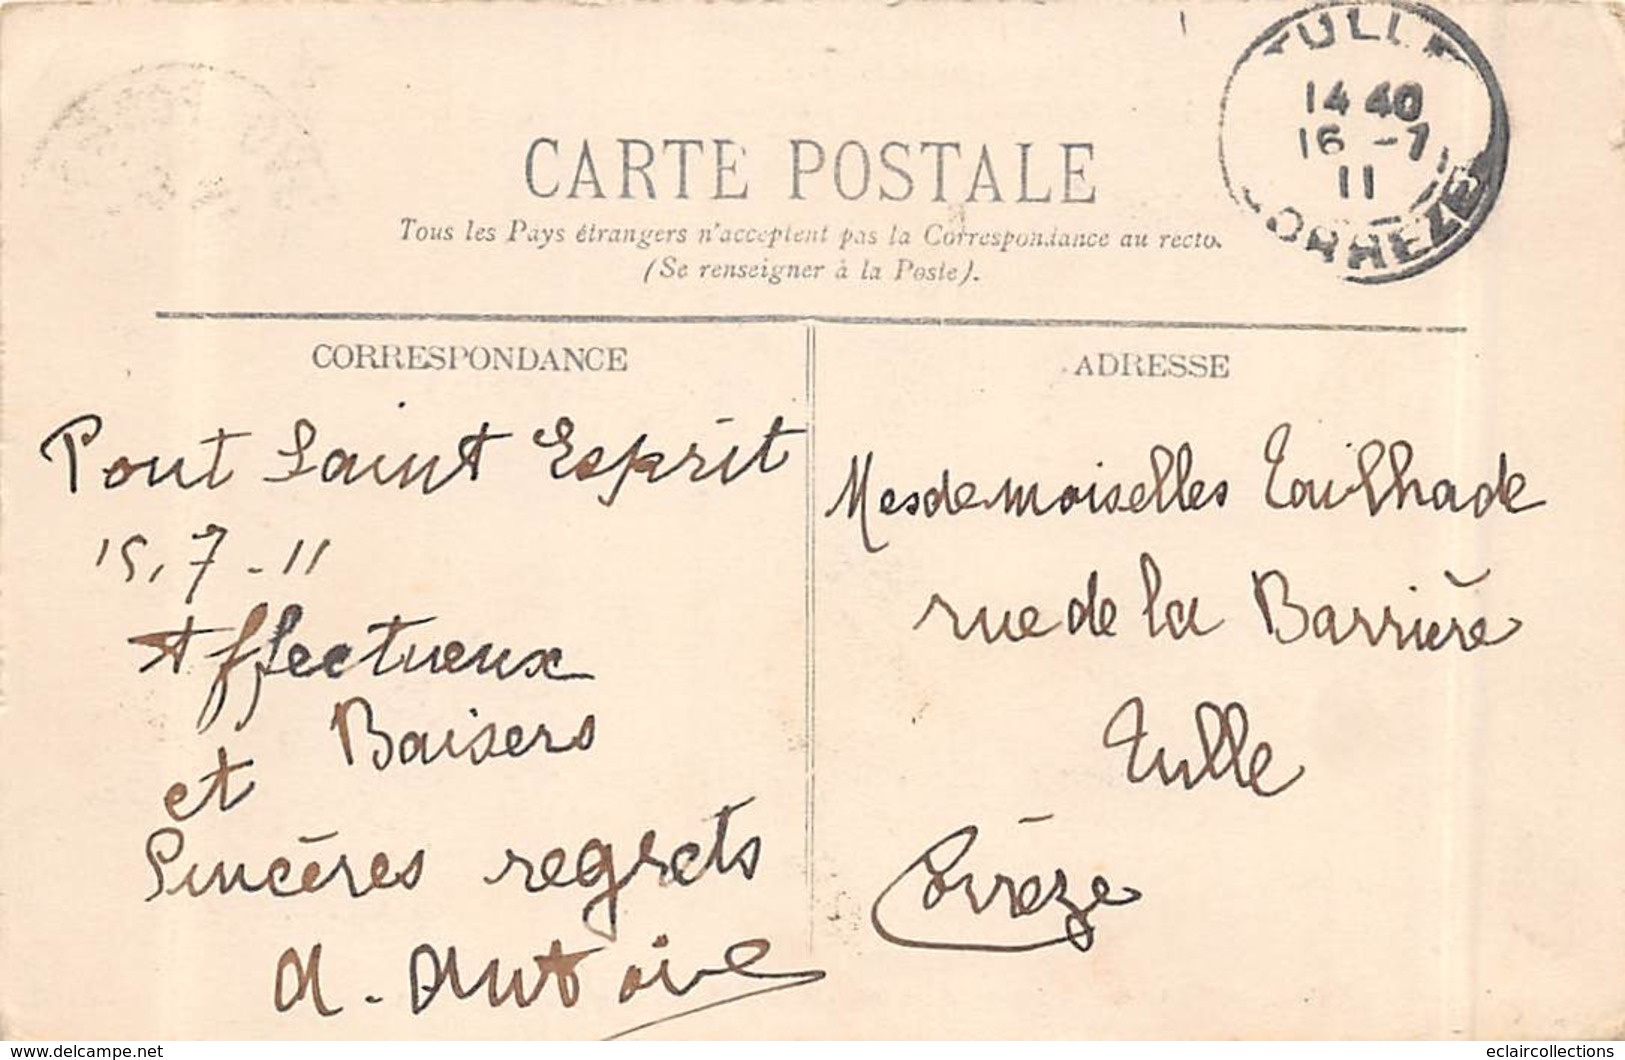 TULLE
14 40
16 -7
11
CORREZE
CARTE POSTALE
Tous les Pays étrangers n'acceptent pas la Correspondance au recto.
(Se renseigner à la Poste).
CORRESPONDANCE
Pont Saint Esprit
15, 7 - 11
Affectueux
Baisers
et
Sincères regrets
A. Antoine
ADRESSE
Mesdemoiselles Tailhade
rue de la Barrière
Tulle
Corrèze
www.delcampe.net
eclaircollections